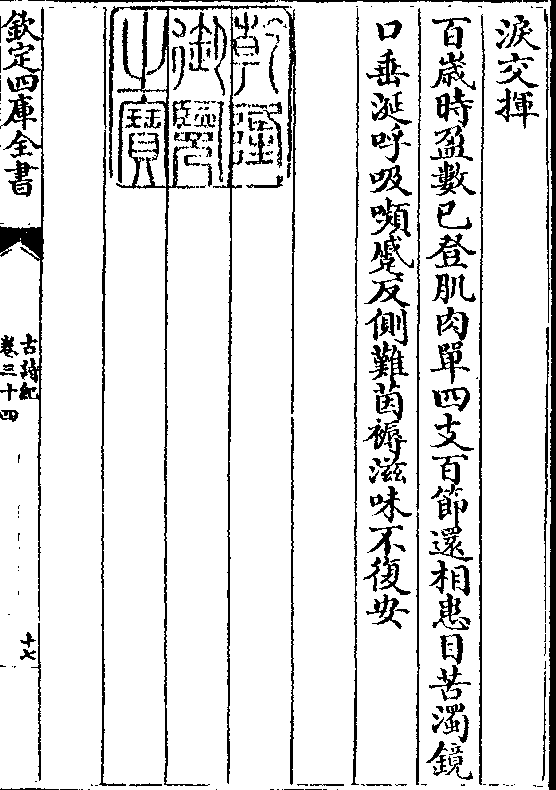 淚交揮
百歲時盈數已登肌肉單四支百節還相患目苦濁鏡
口垂涎呼吸嚬蹙反側難茵褥滋味不復安
乾隆
御覽
之寶
欽定四庫全書
古詩紀
卷三十四
十七